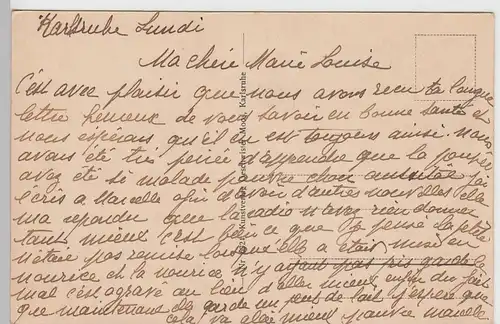 Karlsruhe Lundi
Ma chère Marie Louise
C'est avec plaisir que nous avons recu ta longue
lettre heureux de vous savoir en bonne santé et
nous espérons qu'il en est toujours ainsi. nous
avons été très peinée d'apprendre que la
avez été si malade pauvre chou aussitôt j'ai
écris a Marcelle afin d'avoir d'autres nouvelles elle
ma repondu que la radio n'avez rien donner
tant mieux c'est bien ce que je pensé la petite
n'était pas remise lorsqu'elle a etait mise en
nourrice et la nourice n'y ayant pas pris garde la
mal c'est agravé au lieu d'aller mieux enfin du fait
que maintenant garde un peu de lait j'espère que
cela va aller mieux pauvre Marcelle
Karlsruhe